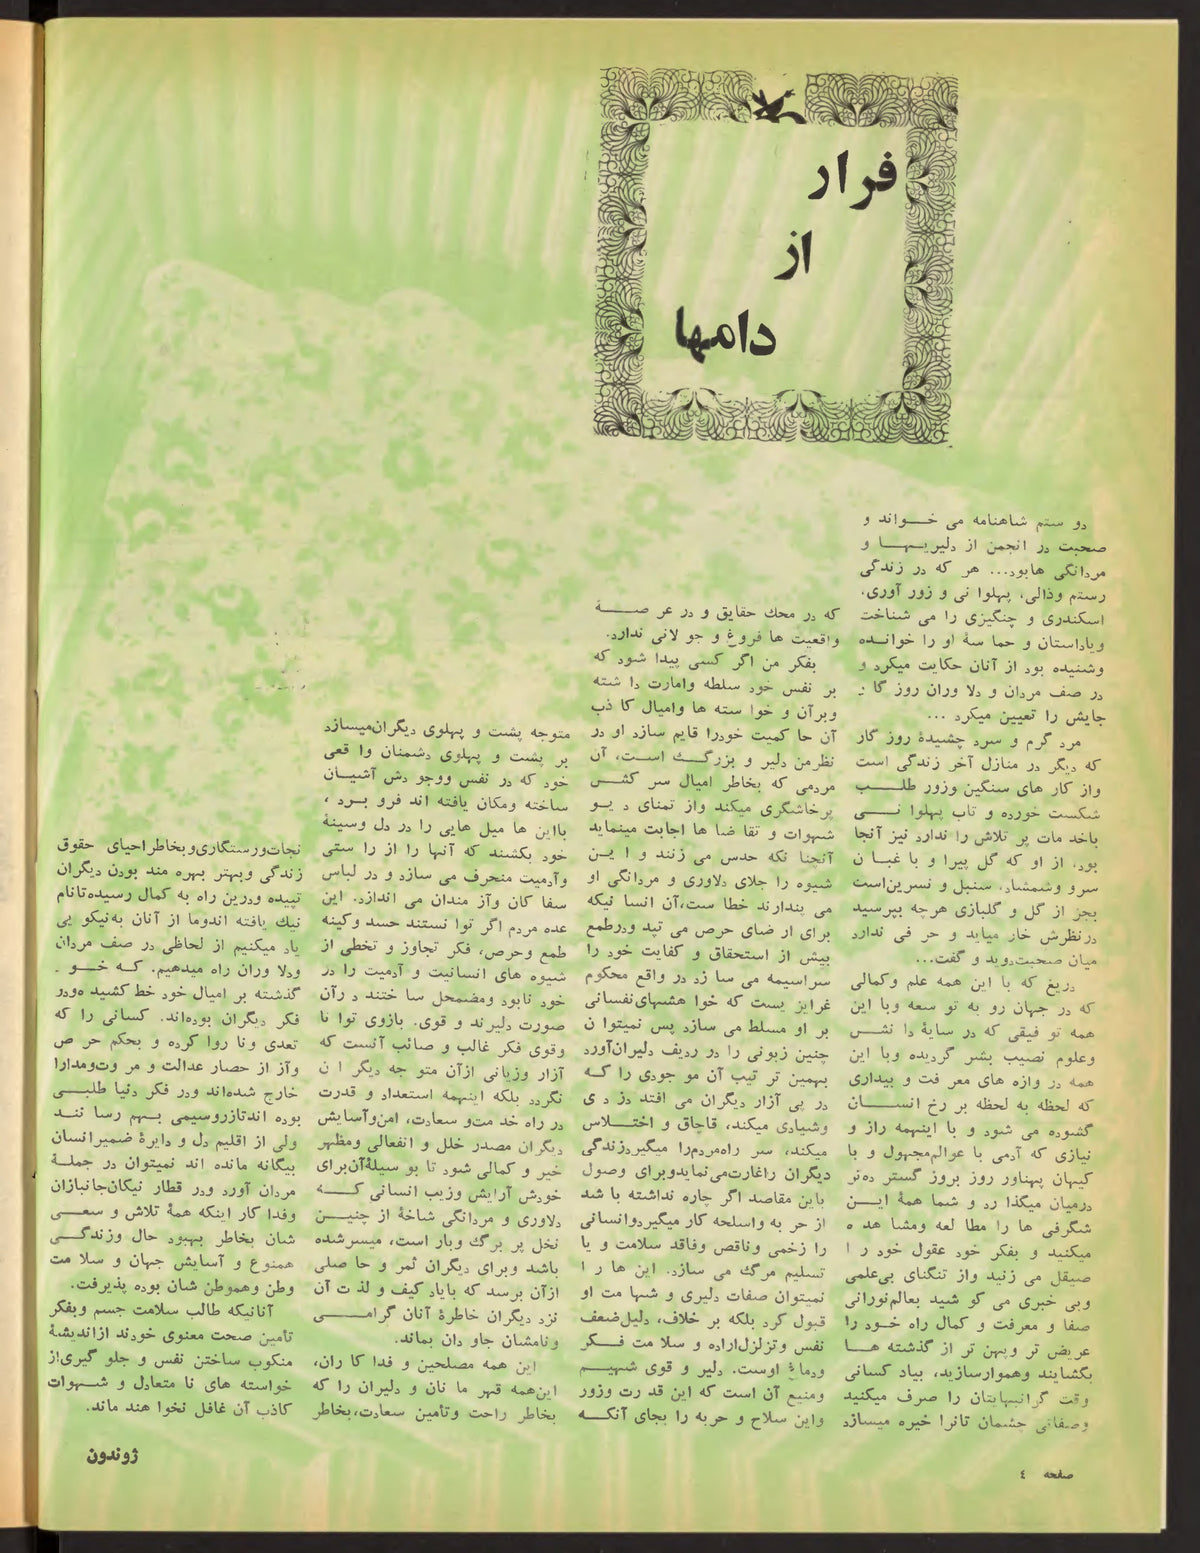 فرار
از
دامها
دو ستم شاهنامه می خـــواند و
صحبت در انجمن از دلیریـــها و
مردانگی هابود... هر که در زندگی
رستم وذالی، پهلوا نی و زور آوری،
اسکندری و چنگیزی را می شناخت
ویاداستان و حما سهٔ او را خوانــده
وشنیده بود از آنان حکایت میکرد و
در صف مردان و دلا وران روز گا ر
جایش را تعیین میکرد ...
مرد گرم و سرد چشیدهٔ روز گار
که دیگر در منازل آخر زندگی است
واز کار های سنگین وزور طلـــب
شکست خورده و تاب پهلوا نـــی
باخد مات پر تلاش را ندارد نیز آنجا
بود، از او که گل پیرا و با غبــا ن
سرو وشمشاد، سنبل و نسرین‌است
بجز از گل و گلبازی هرچه بپرسید
درنظرش خار میاید و حر فی ندارد
میان صحبت‌دوید و گفت...
دریغ که با این همه علم وکمالی
که در جهان رو به تو سعه وبا این
همه تو فیقی که در سایهٔ دا نشــ
وعلوم نصیب بشر گردیده وبا این
همه در وازه های معر فت و بیداری
که لحظه به لحظه بر رخ انســـان
گشوده می شود و با اینهمه راز و
نیازی که آدمی با عوالم‌مجهول و با
کیهان پهناور روز بروز گستر ده‌تر
درمیان میگذا رد و شما همهٔ ایـــن
شگرفی ها را مطا لعه ومشا هد ه
میکنید و بفکر خود عقول خود را
صیقل می زنید واز تنگنای بی‌علمی
وبی خبری می کو شید بعالم‌نورانی
صفا و معرفت و کمال راه خــود را
عریض تر وپهن تر از گذشته هــا
بگشایند وهموارسازید، بیاد کسانی
وقت گرانبهایتان را صرف میکنید
وصفاتی چشمان تانرا خیره میسازد
که در محك حقایق و در عر صـــهٔ
واقعیت ها فروغ و جو لانی ندارد.
بفکر من اگر کسی پیدا شود که
بر نفس خود سلطه وامارت دا شته
وبرآن و خوا سته ها وامیال کا ذب
آن حا کمیت خودرا قایم سازد او در
نظرمن دلیر و بزرگـــ اســت، آن
مردمی که بخاطر امیال سر کشـــ
پرخاشگری میکند واز تمنای د یــو
شهوات و تقا ضا ها اجابت مینماید
آنچنا نکه حدس می زنند و ا یــن
شیوه را جلای دلاوری و مردانگی او
می پندارند خطا ست،آن انسا نیکه
برای ار ضای حرص می تپد ودرطمع
بیش از استحقاق و کفایت خود را
سراسیمه می سا زد در واقع محکوم
غرایز یست که خوا هشهای‌نفسانی
بر او مسلط می سازد پس نمیتوا ن
چنین زبونی را در ردیف دلیران‌آورد
بهمین تر تیب آن مو جودی را کــه
در پی آزار دیگران می افتد دز د ی
وشیادی میکند، قاچاق و اختـــلاس
میکند، سر راه‌مردم‌را میگیردزندگی
دیگران راغارت‌می‌نمایدوبرای وصول
باین مقاصد اگر چاره نداشته با شد
از حر به واسلحه کار میگیردوانسانی
را زخمی وناقص وفاقد سلامت و یا
تسلیم مرگ می سازد. این ها ر ا
نمیتوان صفات دلیری و شها مت او
قبول کرد بلکه بر خلاف، دلیل‌ضعف
نفس وتزلزل‌اراده و سلا مت فــکر
ودماغ اوست. دلیر و قوی شهیــم
ومنیع آن است که این قد رت وزور
واین سلاح و حربه را بجای آنکـــه
متوجه پشت و پهلوی دیگران‌میسازد
بر پشت و پهلوی دشمنان وا قعی
خود که در نفس ووجو دش آشیــان
ساخته ومکان یافته اند فرو بــرد ،
بااین ها میل هایی را در دل وسینهٔ
خود بکشند که آنها را از را ستی
وآدمیت منحرف می سازد و در لباس
سفا کان وآز مندان می اندازد. این
عده مردم اگر توا نستند حسد وکینه
طمع وحرص، فکر تجاوز و تخطی از
شیوه های انسانیت و آدمیت را در
خود نابود ومضمحل سا ختند د رآن
صورت دلیرند و قوی. بازوی توا نا
وقوی فکر غالب و صائب آنست که
آزار وزیانی ازآن متو جه دیگر ا ن
نگردد بلکه اینهمه استعداد و قدرت
در راه خد مت‌و سعادت، امن‌وآسایش
دیگران مصدر خلل و انفعالی ومظهر
خیر و کمالی شود تا بو سیلهٔ‌آن‌برای
خودش آرایش وزیب انسانی کـــه
دلاوری و مردانگی شاخهٔ از چنیــن
نخل پر برگ وبار است، میسرشده
باشد وبرای دیگران ثمر و حا صلی
ازآن برسد که بایاد کیف و لذ ت آن
نزد دیگران خاطرهٔ آنان گرامـــی
ونامشان جاو دان بماند.
این همه مصلحین و فدا کا ران،
این‌همه قهر ما نان و دلیران را که
بخاطر راحت وتأمین سعادت،بخاطر
نجات‌ورستگاری‌وبخاطراحیای حقوق
زندگی وبهتر بهره مند بودن دیگران
تپیده ودرین راه به کمال رسیده‌تانام
نیك یافته اندوما از آنان به‌نیکو یی
یاد میکنیم از لحاظی در صف مردان
ودلا وران راه میدهیم. کـه خــو د
گذشته بر امیال خود خط کشید ه‌ودر
فکر دیگران بوده‌اند. کسانی را که
تعدی ونا روا کرده و بحکم حر ص
وآز از حصار عدالت و مر وت‌ومدارا
خارج شده‌اند ودر فکر دنیا طلبــی
بوده اندتازروسیمی بهم رسا ننــد
ولی از اقلیم دل و دایرهٔ ضمیرانسان
بیگانه مانده اند نمیتوان در جملــهٔ
مردان آورد ودر قطار نیکان‌جانبازان
وفدا کار اینکه همهٔ تلاش و سعــی
شان بخاطر بهبود حال وزندگـــی
همنوع و آسایش جهان و سلا مت
وطن وهموطن شان بوده پذیرفت.
آنانیکه طالب سلامت جسم وبفکر
تأمین صحت معنوی خودند ازاندیشهٔ
منکوب ساختن نفس و جلو گیری‌از
خواسته های نا متعادل و شــهوات
کاذب آن غافل نخوا هند ماند.
صفحه ٤
ژوندون